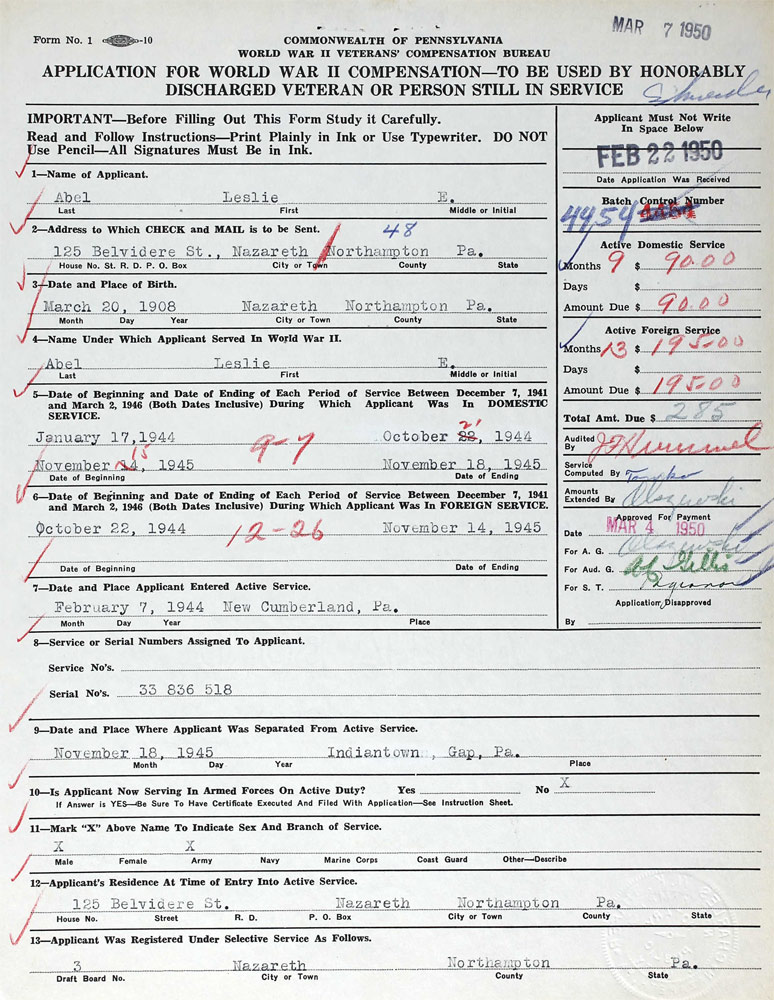 MAR 7 1950
Form No. 1 -10
COMMONWEALTH OF PENNSYLVANIA
WORLD WAR II VETERANS' COMPENSATION BUREAU
APPLICATION FOR WORLD WAR II COMPENSATION—TO BE USED BY HONORABLY
DISCHARGED VETERAN OR PERSON STILL IN SERVICE
IMPORTANT—Before Filling Out This Form Study it Carefully.
Read and Follow Instructions—Print Plainly in Ink or Use Typewriter. DO NOT
Use Pencil—All Signatures Must Be in Ink.
1—Name of Applicant.
Abel Leslie E.
Last First Middle or Initial
2—Address to Which CHECK and MAIL is to be Sent. 48
125 Belvidere St., Nazareth Northampton Pa.
House No. St. R. D. P. O. Box City or Town County State
3—Date and Place of Birth.
March 20, 1908 Nazareth Northampton Pa.
Month Day Year City or Town County State
4—Name Under Which Applicant Served In World War II.
Abel Leslie E.
Last First Middle or Initial
5—Date of Beginning and Date of Ending of Each Period of Service Between December 7, 1941
and March 2, 1946 (Both Dates Inclusive) During Which Applicant Was In DOMESTIC
SERVICE.
21
January 17,1944 October 22, 1944
15 9-7
November 14, 1945 November 18, 1945
Date of Beginning Date of Ending
6—Date of Beginning and Date of Ending of Each Period of Service Between December 7, 1941
and March 2, 1946 (Both Dates Inclusive) During Which Applicant Was In FOREIGN SERVICE.
October 22, 1944 12-26 November 14, 1945
Date of Beginning Date of Ending
7—Date and Place Applicant Entered Active Service.
February 7, 1944 New Cumberland, Pa.
Month Day Year Place
8—Service or Serial Numbers Assigned To Applicant.
Service No's.
Serial No's. 33 836 518
9—Date and Place Where Applicant Was Separated From Active Service.
November 18, 1945 Indiantown , Gap, Pa.
Month Day Year Place
10—Is Applicant Now Serving In Armed Forces On Active Duty? Yes No X
If Answer is YES—Be Sure To Have Certificate Executed And Filed With Application—See Instruction Sheet.
11—Mark "X" Above Name To Indicate Sex And Branch of Service.
X X
Male Female Army Navy Marine Corps Coast Guard Other—Describe
12—Applicant's Residence At Time of Entry Into Active Service.
125 Belvidere St. Nazareth Northampton Pa.
House No. Street R. D. P. O. Box City or Town County State
13—Applicant Was Registered Under Selective Service As Follows.
3 Nazareth Northampton Pa.
Draft Board No. City or Town County State
Applicant Must Not Write
In Space Below
FEB 22 1950
Date Application Was Received
Batch Control Number
4454
Active Domestic Service
Months 9 $ 90.00
Days $
Amount Due $ 90.00
Active Foreign Service
Months 13 $ 195-00
Days $
Amount Due $ 195-00
Total Amt. Due $ 285
Audited
By
Service
Computed By
Amounts
Extended By
Approved For Payment
Date MAR 4 1950
For A. G.
For Aud. G.
For S. T.
Application Disapproved
By